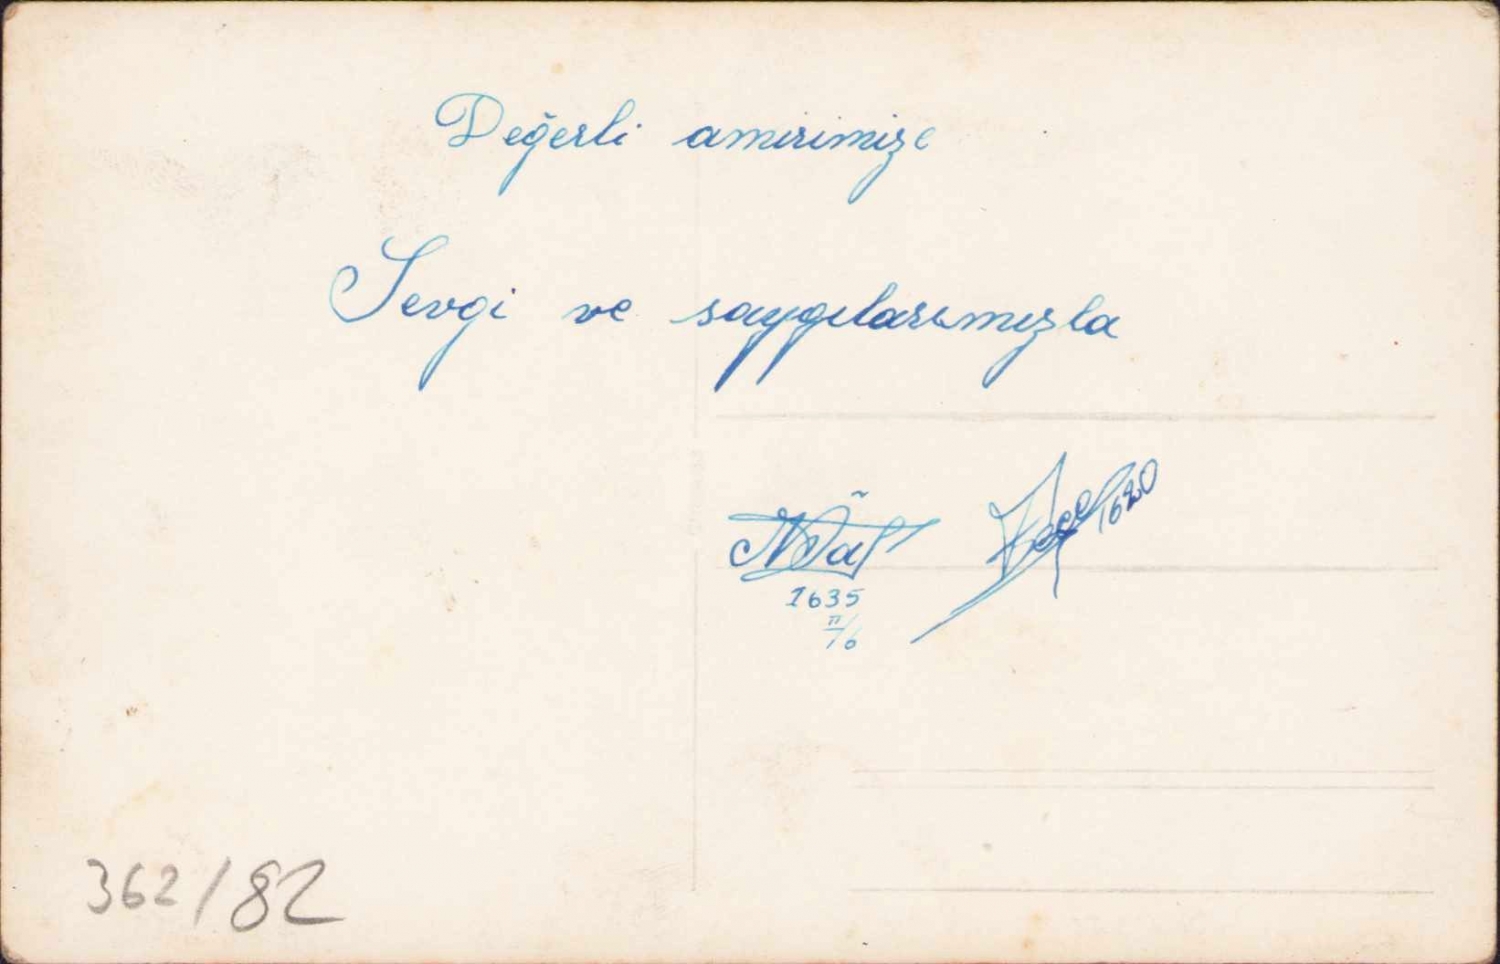 Değerli amirimize
Sevgi ve saygılarımızla
1620
1635
II/6
362/82